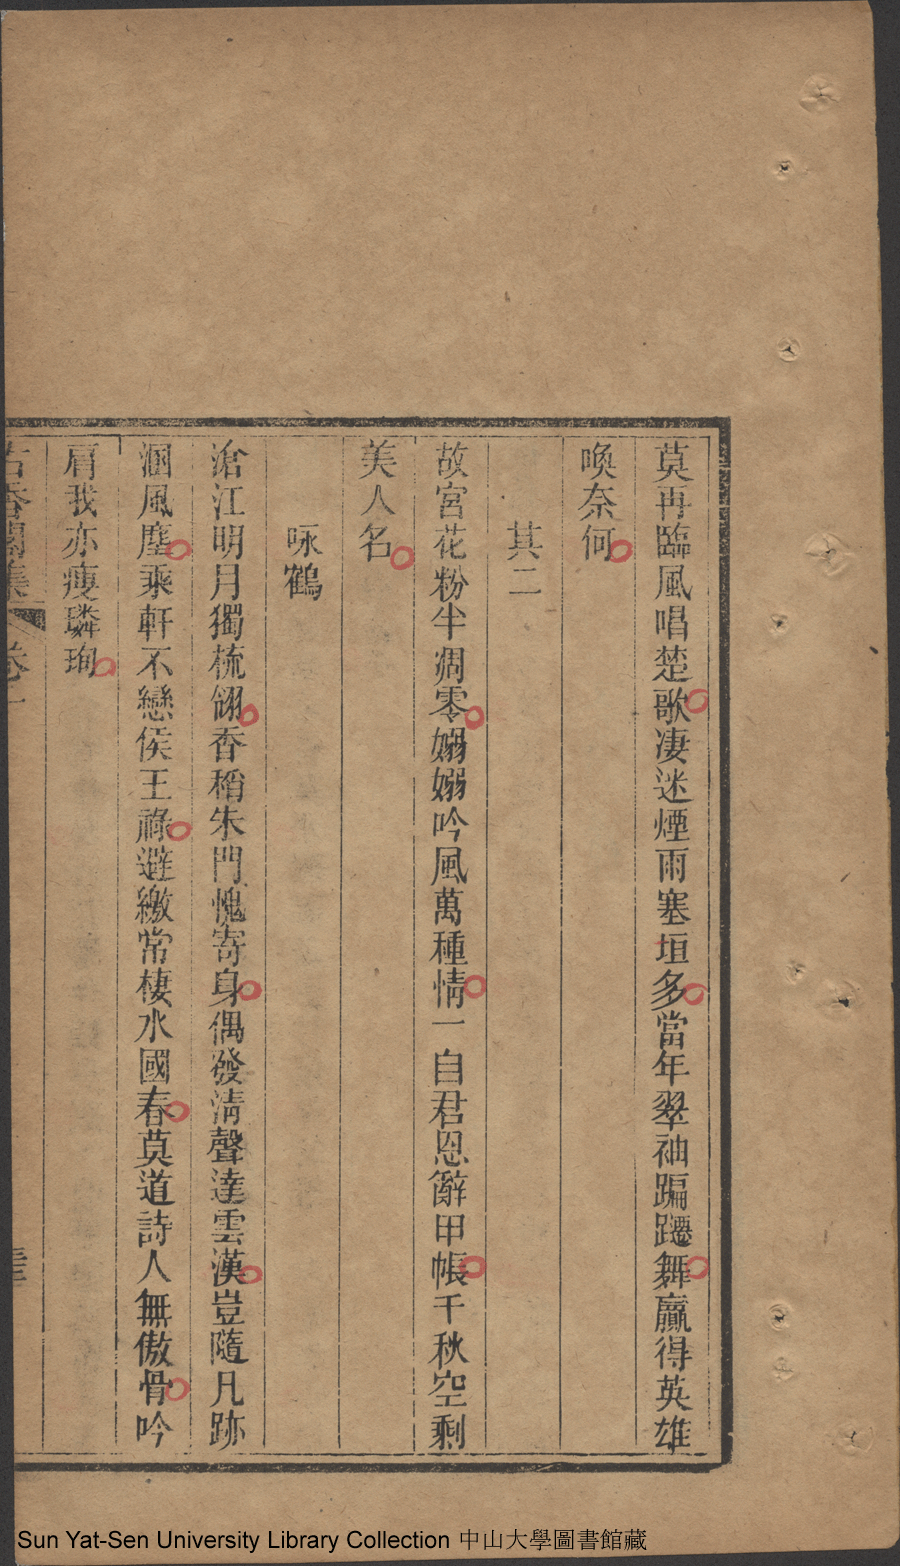 莫再臨風唱楚歌凄迷煙雨塞垣多當年翠袖蹁躚舞贏得英雄
喚奈何
其二
故宮花粉半凋零嫋嫋吟風萬種情一自君恩辭甲帳千秋空剩
美人名
咏鶴
滄江明月獨梳翎香稻朱門愧寄身偶發清聲達雲漢豈隨凡跡
溷風塵乘軒不戀侯王祿避繳常棲水國春莫道詩人無傲骨吟
肩我亦瘦璘珣
香閣集 卷一
Sun Yat-Sen University Library Collection 中山大學圖書館藏